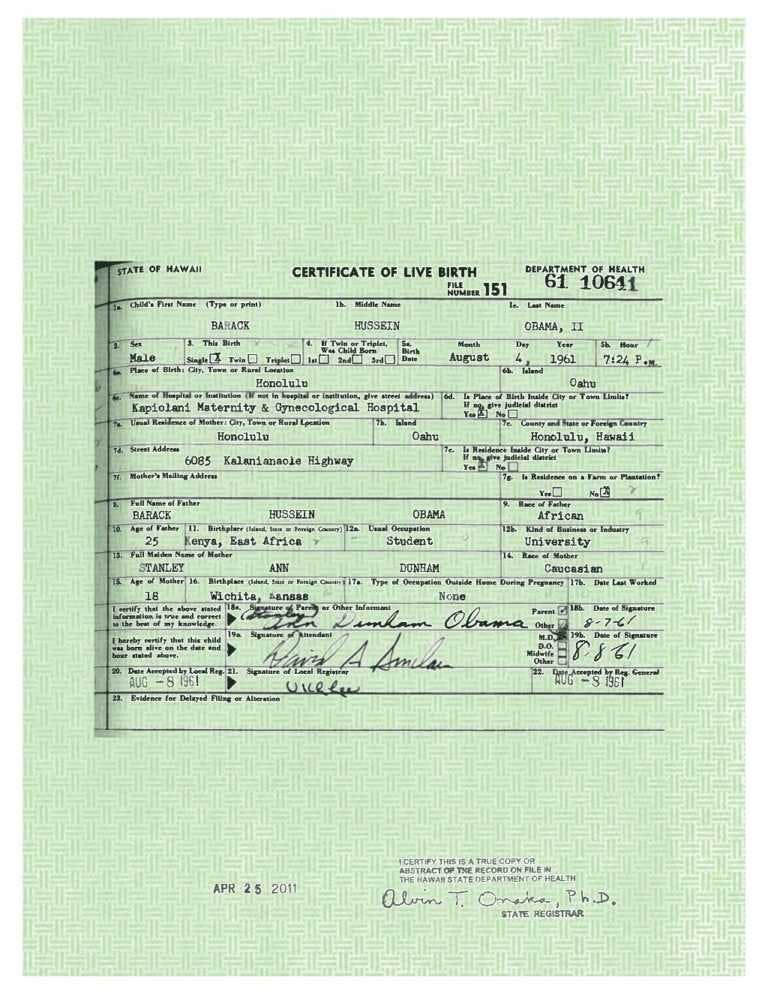 STATE OF HAWAII
CERTIFICATE OF LIVE BIRTH
DEPARTMENT OF HEALTH
FILE NUMBER 151
61 10641
1a. Child's First Name (Type or print) 1b. Middle Name 1c. Last Name
BARACK HUSSEIN OBAMA, II
2. Sex 3. This Birth 4. If Twin or Triplet, Was Child Born 5a. Birth Date Month Day Year 5b. Hour
Male Single X Twin Triplet 1st 2nd 3rd August 4, 1961 7:24 P.M.
6a. Place of Birth: City, Town or Rural Location 6b. Island
Honolulu Oahu
6c. Name of Hospital or Institution (If not in hospital or institution, give street address) 6d. Is Place of Birth Inside City or Town Limits? If no, give judicial district
Kapiolani Maternity & Gynecological Hospital Yes X No
7a. Usual Residence of Mother: City, Town or Rural Location 7b. Island 7c. County and State or Foreign Country
Honolulu Oahu Honolulu, Hawaii
7d. Street Address 7e. Is Residence Inside City or Town Limits? If no, give judicial district
6085 Kalanianaole Highway Yes X No
7f. Mother's Mailing Address 7g. Is Residence on a Farm or Plantation?
Yes No X
8. Full Name of Father 9. Race of Father
BARACK HUSSEIN OBAMA African
10. Age of Father 11. Birthplace (Island, State or Foreign Country) 12a. Usual Occupation 12b. Kind of Business or Industry
25 Kenya, East Africa Student University
13. Full Maiden Name of Mother 14. Race of Mother
STANLEY ANN DUNHAM Caucasian
15. Age of Mother 16. Birthplace (Island, State or Foreign Country) 17a. Type of Occupation Outside Home During Pregnancy 17b. Date Last Worked
18 Wichita, Kansas None
I certify that the above stated information is true and correct to the best of my knowledge.
18a. Signature of Parent or Other Informant Parent Other 18b. Date of Signature
(Stanley) Ann Dunham Obama 8-7-61
I hereby certify that this child was born alive on the date and hour stated above.
19a. Signature of Attendant M.D. D.O. Midwife Other 19b. Date of Signature
David A Sinclair 8-8-61
20. Date Accepted by Local Reg. 21. Signature of Local Registrar 22. Date Accepted by Reg. General
AUG -8 1961 U K Lee AUG -8 1961
23. Evidence for Delayed Filing or Alteration
APR 25 2011
I CERTIFY THIS IS A TRUE COPY OR
ABSTRACT OF THE RECORD ON FILE IN
THE HAWAII STATE DEPARTMENT OF HEALTH
Alvin T. Onaka, Ph.D.
STATE REGISTRAR